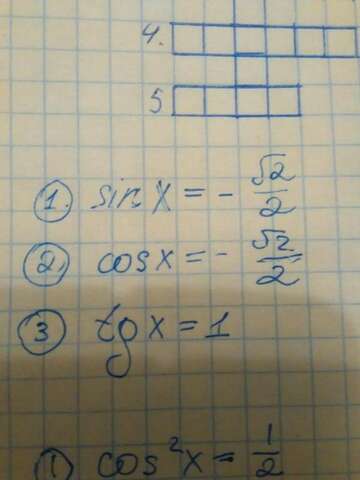 4.
5
1. sin x = - √2/2
2. cos x = - √2/2
3 tg x = 1
1 cos²x = 1/2